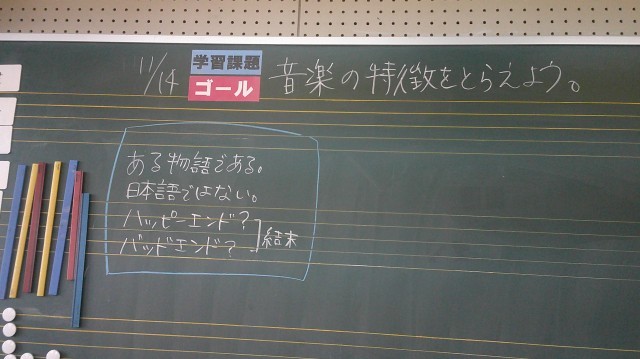 11/14 学習課題 ゴール 音楽の特徴をとらえよう。
ある物語である。
日本語ではない。
ハッピーエンド?
バッドエンド?
結末